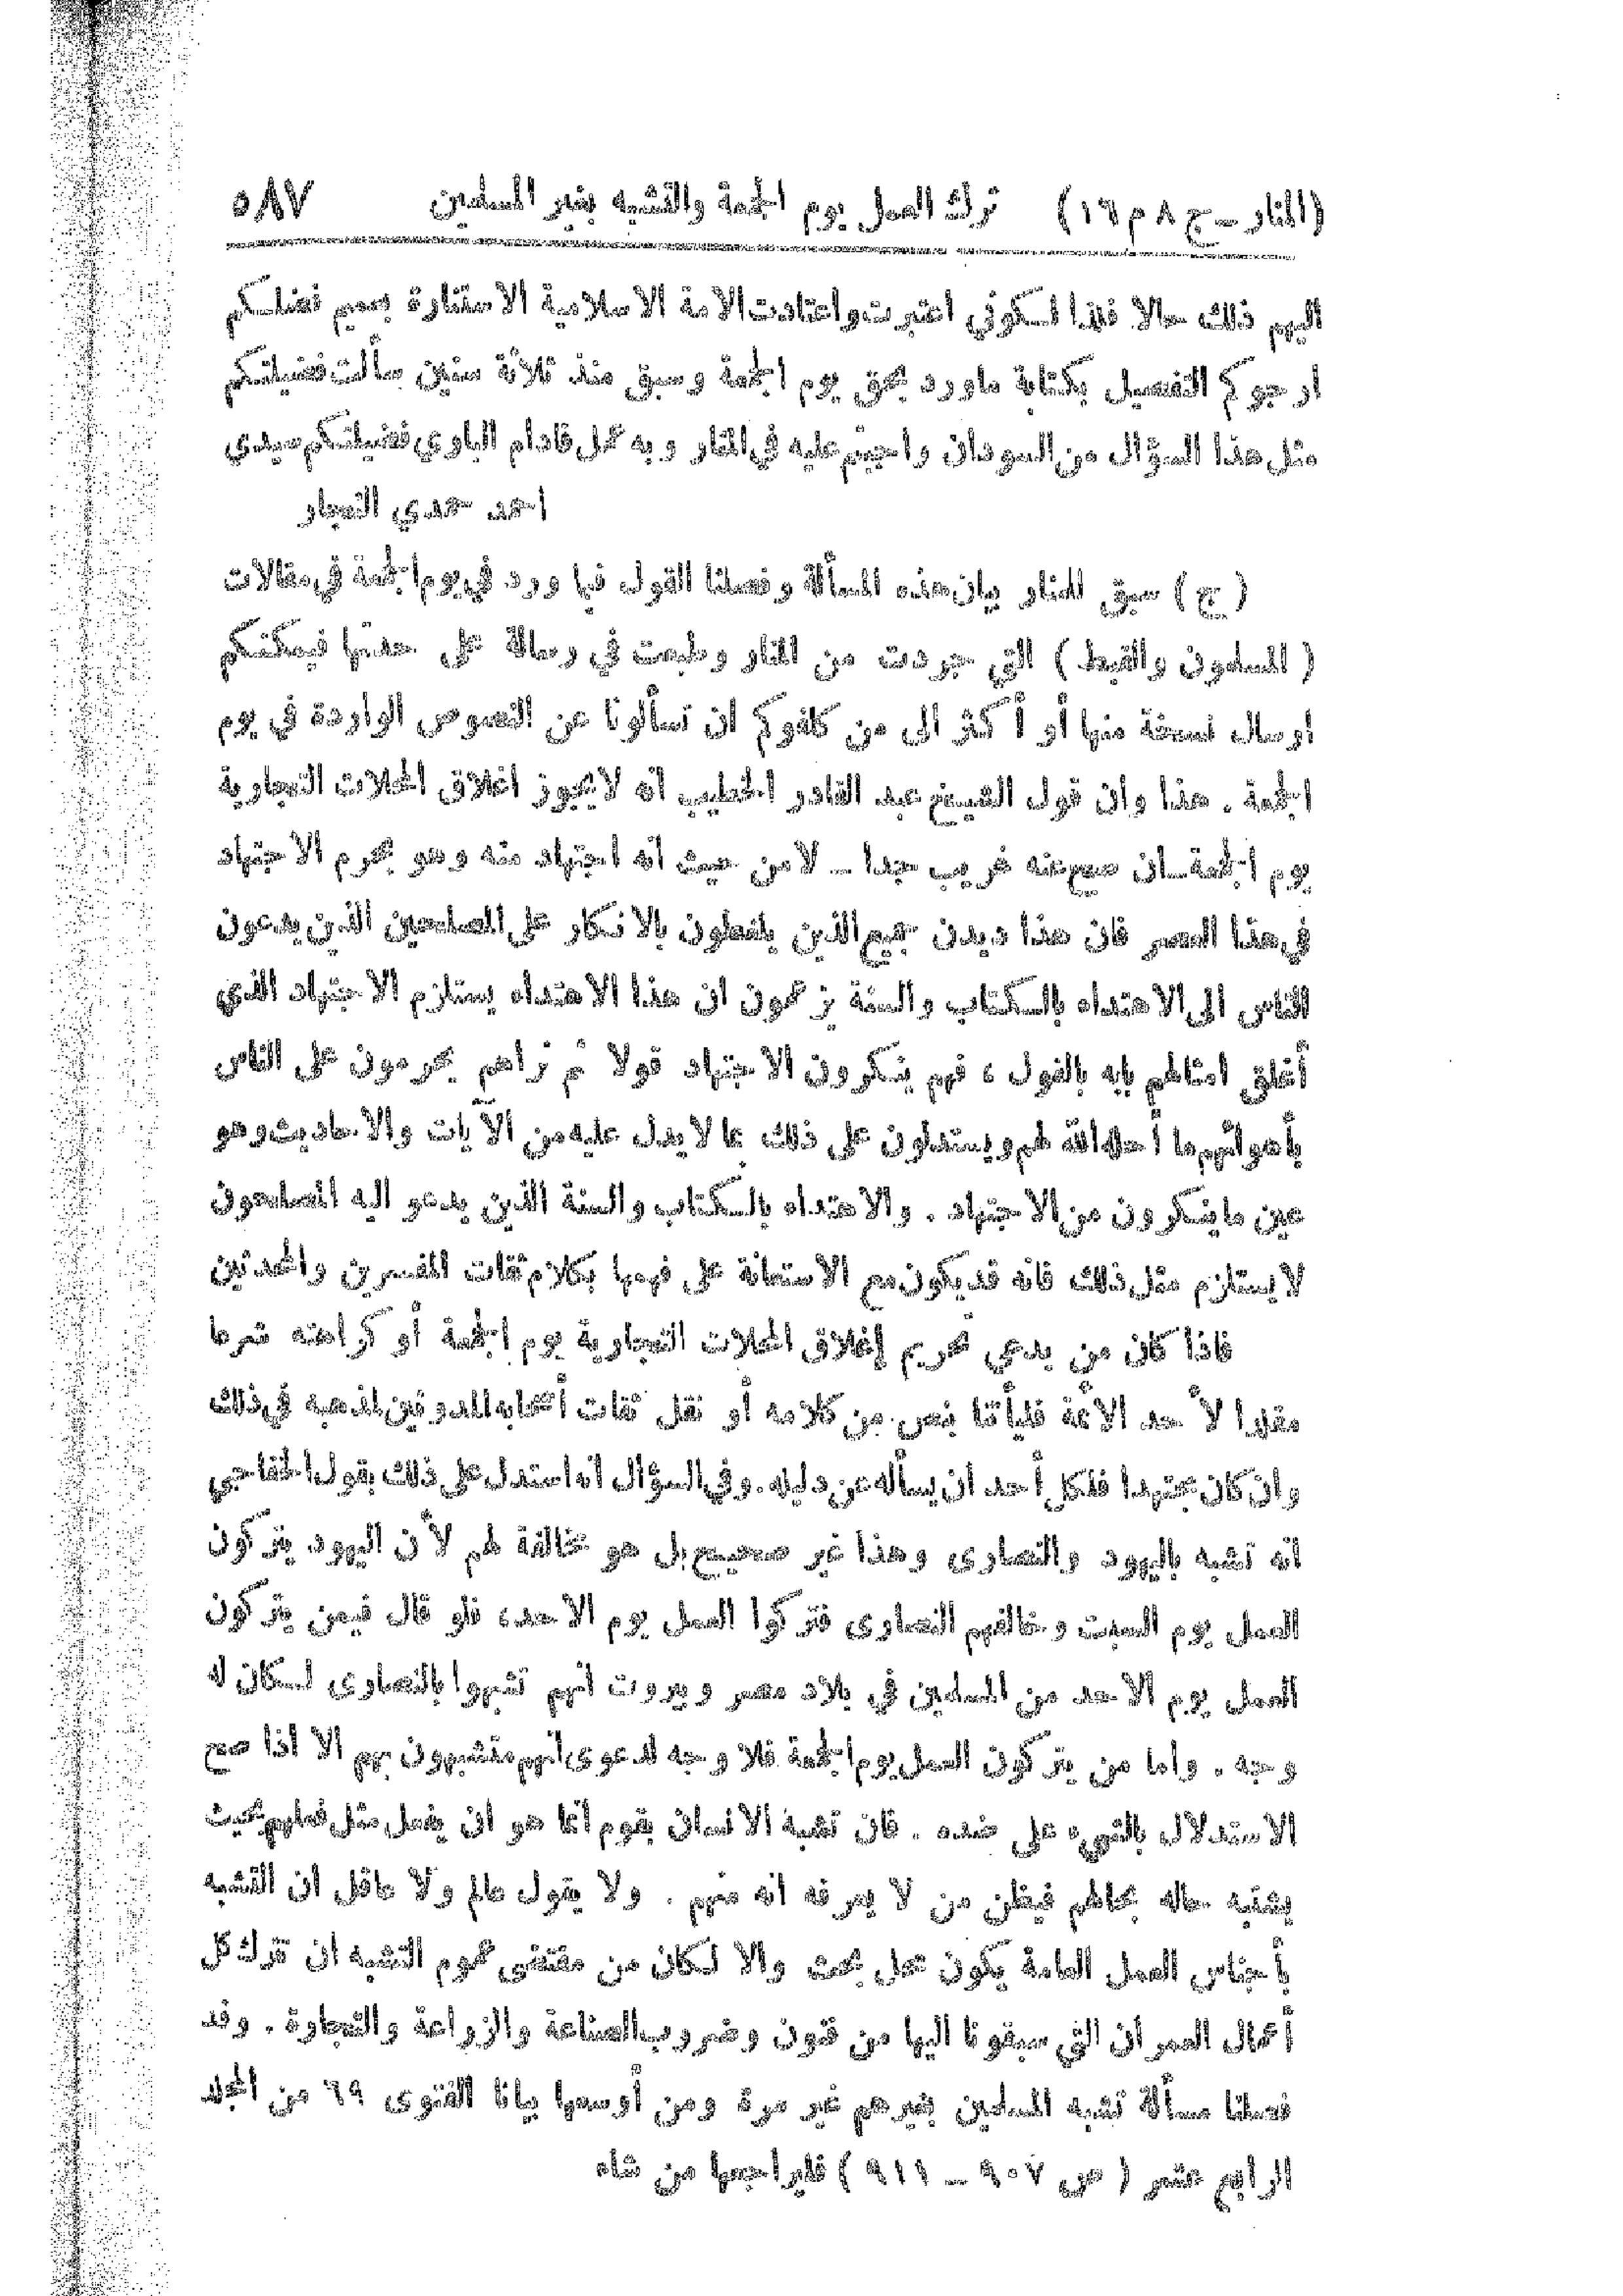 (المنار ـ ج ٨ م ١٦) ترك العمل يوم الجمعة والتشبه بغير المسلمين ٥٨٧
اليهم ذلك حالا فلذا لكوني اعتبرت واعتادت الامة الاسلامية الاستنارة بعميم فضلكم
ارجوكم التفصيل بكتابة ماورد بحق يوم الجمعة وسبق منذ ثلاثة سنين سألت فضيلتكم
مثل هذا السؤال من السودان واجبتم عليه في المنار وبه عمل فادام الباري فضيلتكم سيدي
احمد حمدي النجار
(ج) سبق للمنار بيان هذه المسألة وفصلنا القول فيما ورد في يوم الجمعة في مقالات
(المسلمون والقبط) التي جردت من المنار وطبعت في رسالة على حدتها فيمكنكم
ارسال نسخة منها أو أكثر الى من كلفوكم ان تسألونا عن النصوص الواردة في يوم
الجمعة . هذا وان قول الشيخ عبد القادر الخطيب انه لا يجوز اغلاق المحلات التجارية
يوم الجمعة ـ ان صح عنه غريب جدا ـ لا من حيث انه اجتهاد منه وهو يحرم الاجتهاد
في هذا العصر فان هذا ديدن جميع الذين يلغطون بالانكار على المصلحين الذين يدعون
الناس الى الاهتداء بالكتاب والسنة يزعمون ان هذا الاهتداء يستلزم الاجتهاد الذي
أغلق امثالهم بابه بالقول ، فهم ينكرون الاجتهاد قولا ثم نراهم يحرمون على الناس
بأهوائهم ما أحله الله لهم ويستدلون على ذلك بما لا يدل عليه من الآيات والاحاديث وهو
عين ما ينكرون من الاجتهاد . والاهتداء بالكتاب والسنة الذين يدعو اليه المصلحون
لا يستلزم مثل ذلك فانه قد يكون مع الاستعانة على فهمها بكلام ثقات المفسرين والمحدثين
فاذا كان من يدعي تحريم إغلاق المحلات التجارية يوم الجمعة أو كراهته شرعا
مقلدا لأحد الأئمة فليأتنا بنص من كلامه أو نقل ثقات أصحابه المدونين لمذهبه في ذلك
وان كان مجتهدا فلكل أحد ان يسأله عن دليله . وفي السؤال انه استدل على ذلك بقول الخفاجي
انه تشبه باليهود والنصارى وهذا غير صحيح بل هو مخالفة لهم لأن اليهود يتركون
العمل يوم السبت وخالفهم النصارى فتركوا العمل يوم الاحد، فلو قال فيمن يتركون
العمل يوم الاحد من المسلمين في بلاد مصر وبيروت انهم تشبهوا بالنصارى لكان له
وجه . واما من يتركون العمل يوم الجمعة فلا وجه لدعوى انهم متشبهون بهم الا اذا صح
الاستدلال بالشيء على ضده . فان تشبه الانسان بقوم انما هو ان يفعل مثل فعلهم بحيث
يشتبه حاله بحالهم فيظن من لا يعرفه انه منهم . ولا يقول عالم ولا عاقل ان التشبه
بأجناس العمل العامة يكون محل بحث والا لكان من مقتضى عموم التشبه ان نترك كل
أعمال العمران التي سبقونا اليها من فنون وضروب الصناعة والزراعة والتجارة . وقد
فصلنا مسألة تشبه المسلمين بغيرهم غير مرة ومن أوسعها بيانا الفتوى ٦٩ من المجلد
الرابع عشر (ص ٩٠٧ ـ ٩١١) فليراجعها من شاء